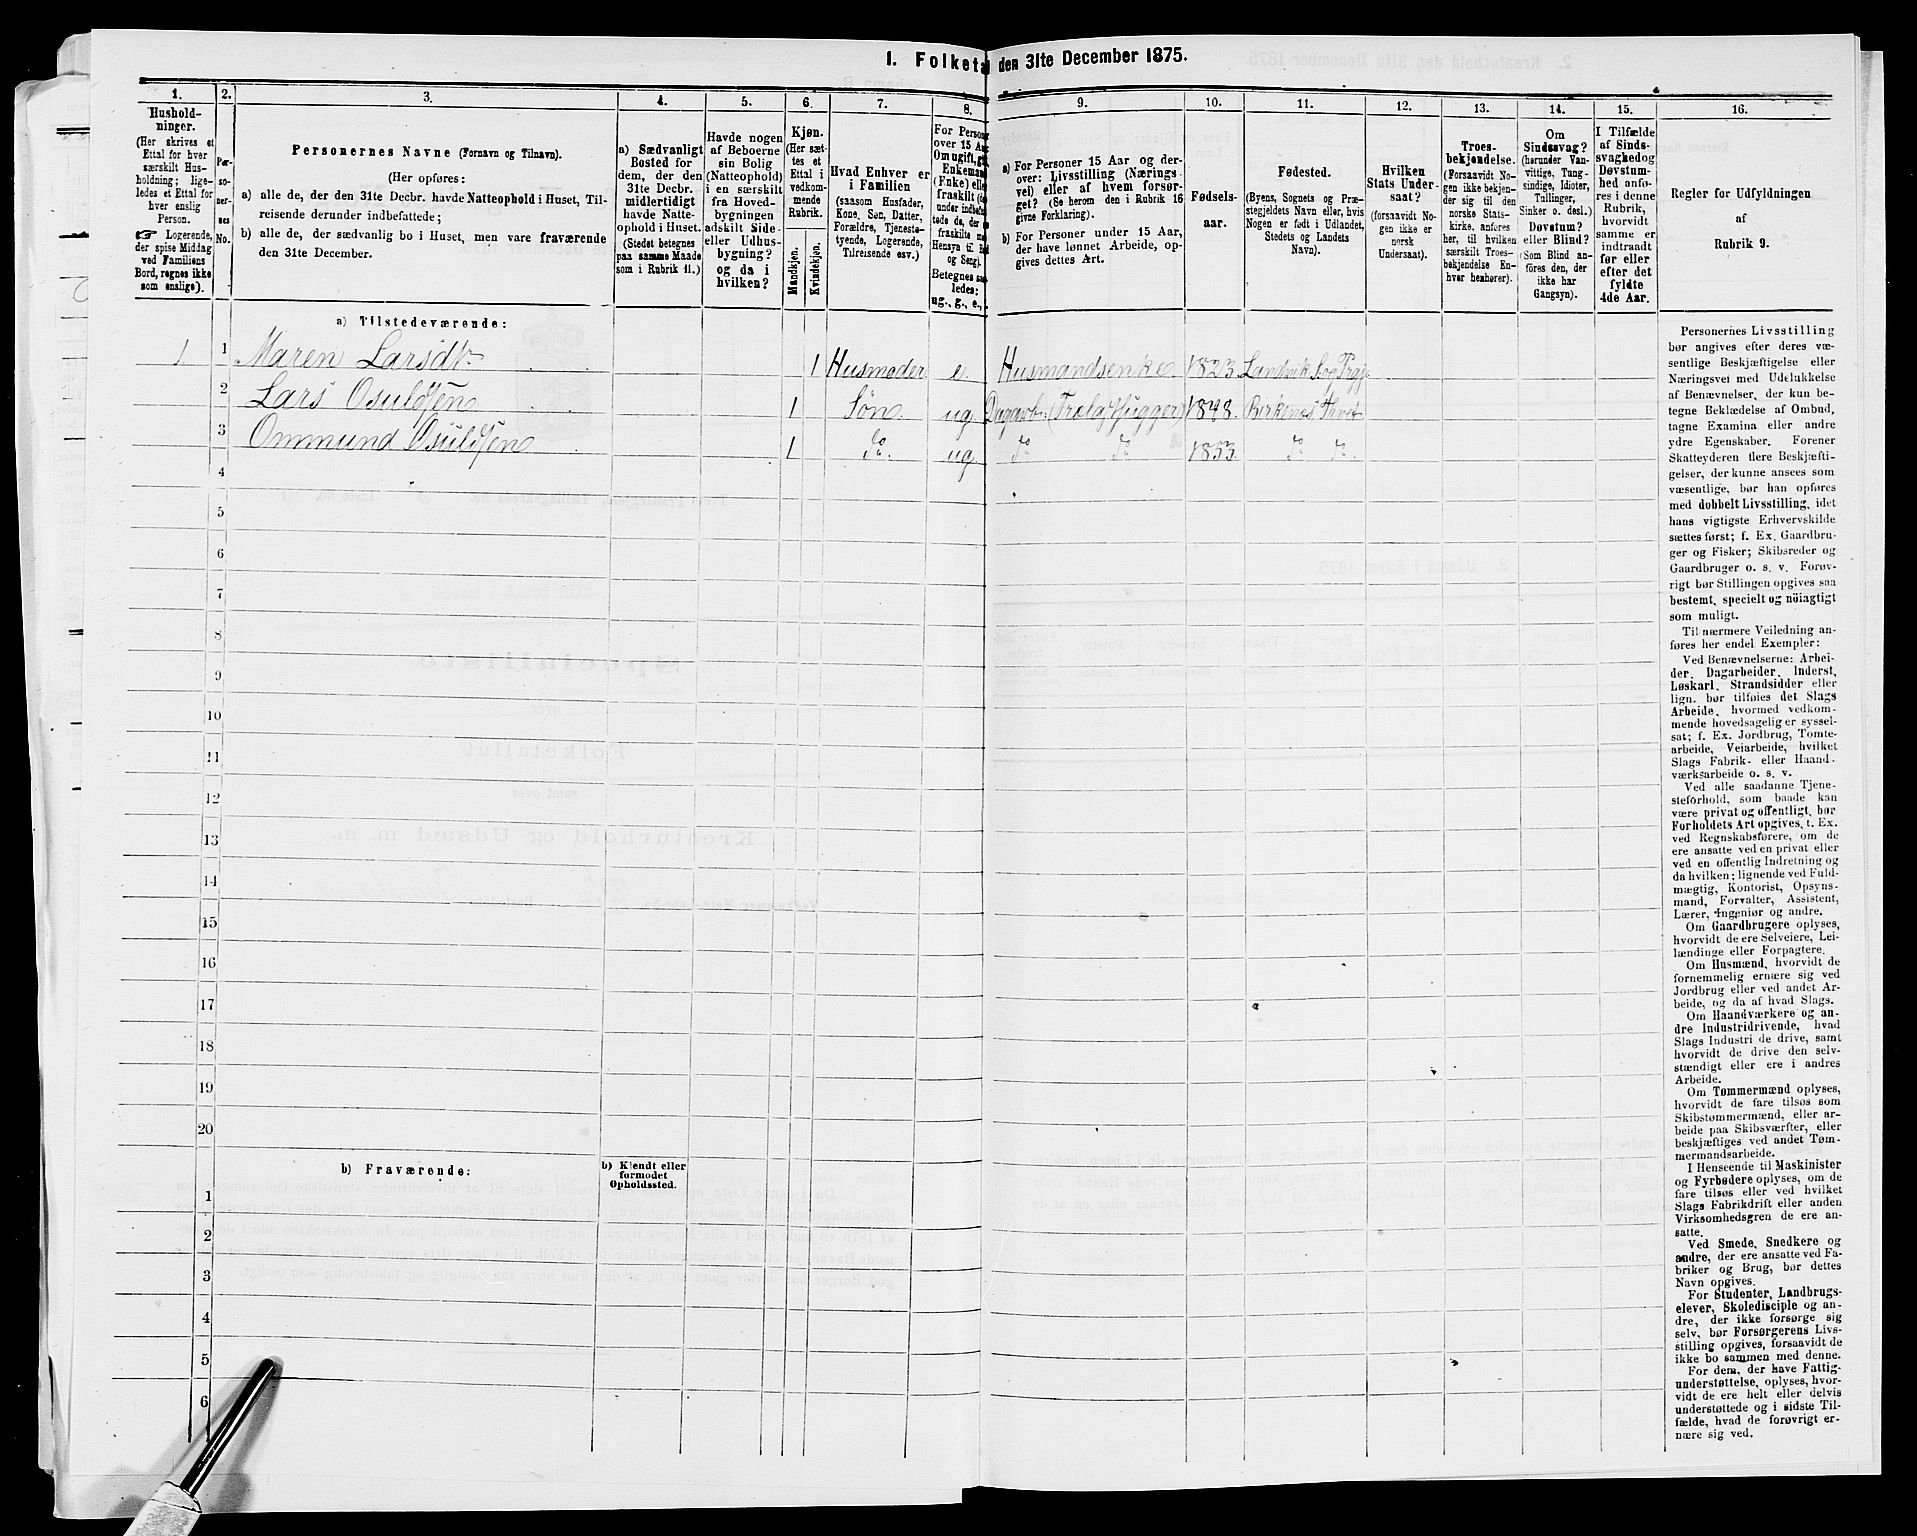 I. Folketal den 31te December 1875.
1.
Hushold-
ninger.
(Her skrives et
Ettal for hver
særskilt Hus-
holdning; lige-
ledes et Ettal for
hver enslig
Person.
☞ Logerende,
der spise Middag
ved Familiens
Bord, regnes ikke
som enslige).
2.
Per-
so-
ner-
nes
No.
3.
Personernes Navne (Fornavn og Tilnavn).
(Her opføres:
a) alle de, der den 31te Decbr. havde Natteophold i Huset, Til-
reisende derunder indbefattede;
b) alle de, der sædvanlig bo i Huset, men vare fraværende
den 31te December.
4.
a) Sædvanligt
Bosted for
dem, der den
31te Decbr.
midlertidigt
havde Natte-
ophold i Huset.
(Stedet betegnes
paa samme Maade
som i Rubrik 11.)
5.
Havde nogen
af Beboerne
sin Bolig
(Natteophold)
i en særskilt
fra Hoved-
bygningen
adskilt Side-
eller Udhus-
bygning?
og da i
hvilken?
6.
Kjøn.
(Her sæt-
tes et
Ettal i
vedkom-
mende
Rubrik.
Mandkjøn.
Kvindekjøn.
7.
Hvad Enhver er
i Familien
(saasom Husfader,
Kone, Søn, Datter,
Forældre, Tjeneste-
tyende, Logerende,
Tilreisende osv.)
8.
For Person
over 15 Aa
Om ugift, gi
Enkeman
(Enke) elle
fraskilt
under indbe
tede de, der
fraskilte m
Hensyn til B
og Seng).
Betegnes saa
ledes:
ug., g., e.,
9.
a) For Personer 15 Aar og der-
over: Livsstilling (Nærings
vei) eller af hvem forsør-
get? (Se herom den i Rubrik 16
givne Forklaring).
b) For Personer under 15 Aar,
der have lønnet Arbeide, op-
gives dettes Art.
10.
Fødsels-
aar.
11.
Fødested.
(Byens, Sognets og Præ-
stegjeldets Navn eller, hvis
Nogen er født i Udlandet,
Stedets og Landets
Navn).
12.
Hvilken
Stats Under-
saat?
(forsaavidt No-
gen ikke er
norsk
Undersaat).
13.
Troes-
bekjendelse.
(Forsaavidt No-
gen ikke bekjen-
der sig til den
norske Stats-
kirke, anføres
her, til hvilken
særskilt Troes-
bekjendelse En-
hver henhører).
14.
Om
Sindssvag?
(herunder Van-
vittige, Tung-
sindige, Idioter,
Tullinger,
Sinker o. desl.)
Døvstum?
eller Blind?
(Som Blind an-
føres den, der
ikke har
Gangsyn).
15.
I Tilfælde
af Sinds-
svaghed og
Døvstum-
hed anfø-
res i denne
Rubrik,
hvorvidt
samme er
indtraadt
før eller
efter det
fyldte
4de Aar.
16.
Regler for Udfyldningen
af
Rubrik 9.
a) Tilstedeværende:
1 1 Maren Larsdtr 1 Husmoder e. Husmandsenke 1823 Landvik S. og Prgj.
2 Lars Osuldsen 1 Søn. ug Dagarb. (Trælasthugger) 1848. Birkenes
3 Ommund Osuldsen 1 do. ug do do 1853. do do
4
5
6
7
8
9
10
11
12
13
14
15
16
17
18
19
20
b) Fraværende:
b) Kjendt eller
formodet
Opholdssted.
1
2
3
4
5
6
Personernes Livsstilling
bør angives efter deres væ-
sentlige Beskjæftigelse eller
Næringsvei med Udelukkelse
af Benævnelser, der kun be-
tegne Beklædelse af Ombud,
tagne Examina eller andre
ydre Egenskaber. Forener
Skatteyderen flere Beskjæfti-
gelser, der kunne ansees som
væsentlige, bør han opføres
med dobbelt Livsstilling, idet
hans vigtigste Erhvervskilde
sættes først; f. Ex. Gaardbru-
ger og Fisker; Skibsreder og
Gaardbruger o. s. v. Forøv-
rigt bør Stillingen opgives saa
bestemt, specielt og nöiagtigt
som muligt.
Til nærmere Veiledning an-
føres her endel Exempler:
Ved Benævnelserne: Arbei-
der, Dagarbeider, Inderst,
Løskarl, Strandsidder eller
lign. bør tilføies det Slags
Arbeide, hvormed vedkom-
mende hovedsagelig er syssel-
sat; f. Ex. Jordbrug, Tomte-
arbeide, Veiarbeide, hvilket
Slags Fabrik- eller Haand-
værksarbeide o. s. v.
Ved alle saadanne Tjene-
steforhold, som baade kan
være privat og offentligt, bør
Forholdets Art opgives, t. Ex.
ved Regnskabsførere, om de
ere ansatte ved en privat eller
ved en offentlig Indretning og
da hvilken; lignende ved Fuld-
mægtig, Kontorist, Opsyns-
mand, Forvalter, Assistent,
Lærer, Ingeniør og andre.
Om Gaardbrugere oplyses,
hvorvidt de ere Selveiere, Lei-
lændinge eller Forpagtere.
Om Husmænd, hvorvidt de
fornemmelig ernære sig ved
Jordbrug eller ved andet Ar-
beide, og da af hvad Slags.
Om Haandværkere og an-
dre Industridrivende, hvad
Slags Industri de drive, samt
hvorvidt de drive den selv-
stændigt eller ere i andres
Arbeide.
Om Tømmermænd oplyses,
hvorvidt de fare tilsøs som
Skibstømmermænd, eller ar-
beide paa Skibsværfter, eller
beskjæftiges ved andet Tøm-
mermandsarbeide.
I Henseende til Maskinister
og Fyrbødere oplyses, om de
fare tilsøs eller ved hvilket
Slags Fabrikdrift eller anden
Virksomhedsgren de ere an-
satte.
Ved Smede, Snedkere og
andre, der ere ansatte ved Fa-
briker og Brug, bør dettes
Navn opgives.
For Studenter, Landbrugs-
elever, Skoledisciple og an-
dre, der ikke forsørge sig
selv, bør Forsørgerens Livs-
stilling opgives, forsaavidt de
ikke bo sammen med denne.
For dem, der have Fattig-
understøttelse, oplyses, hvor-
vidt de ere helt eller delvis
understøttede og i sidste Til-
fælde, hvad de forøvrigt er-
nære sig ved.